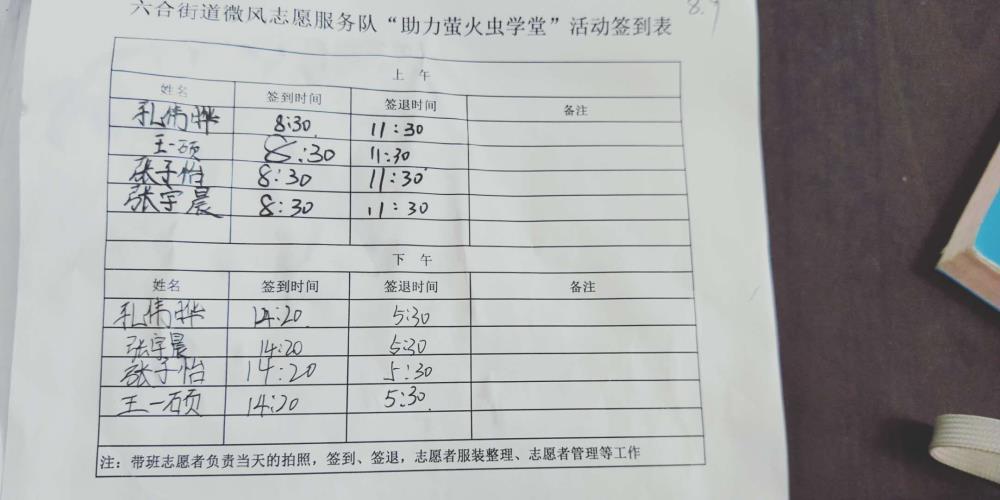 8.9
六合街道微风志愿服务队“助力萤火虫学堂”活动签到表
上 午
姓名 签到时间 签退时间 备注
孔伟骅 8:30 11:30
王一硕 8:30 11:30
张子怡 8:30 11:30
张宇晨 8:30 11:30
下 午
姓名 签到时间 签退时间 备注
孔伟骅 14:20 5:30
张宇晨 14:20 5:30
张子怡 14:20 5:30
王一硕 14:20 5:30
注：带班志愿者负责当天的拍照，签到、签退，志愿者服装整理、志愿者管理等工作